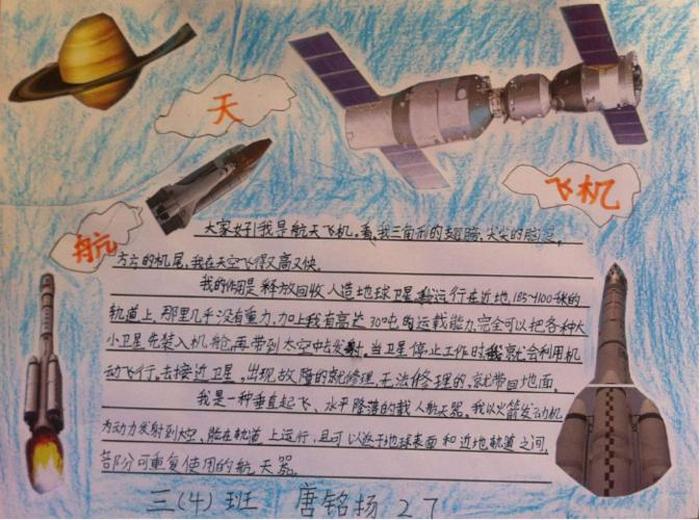 航
天
飞机
大家好!我是航天飞机。看,我三角形的翅膀,尖尖的脑袋,
方方的机尾,我在天空飞得又高又快。
我的作用是释放回收人造地球卫星,运行在近地185~1100千米的
轨道上,那里几乎没有重力,加上我有高达30吨的运载能力,完全可以把各种大
小卫星先装入机舱,再带到太空中去发射,当卫星停止工作时我就会利用机
动飞行,去接近卫星,出现故障的就修理,无法修理的,就带回地面。
我是一种垂直起飞、水平降落的载人航天器,我以火箭发动机
为动力发射到太空,能在轨道上运行,且可以返于地球表面和近地轨道之间,
部分可重复使用的航天器。
三(4)班 唐铭扬 27